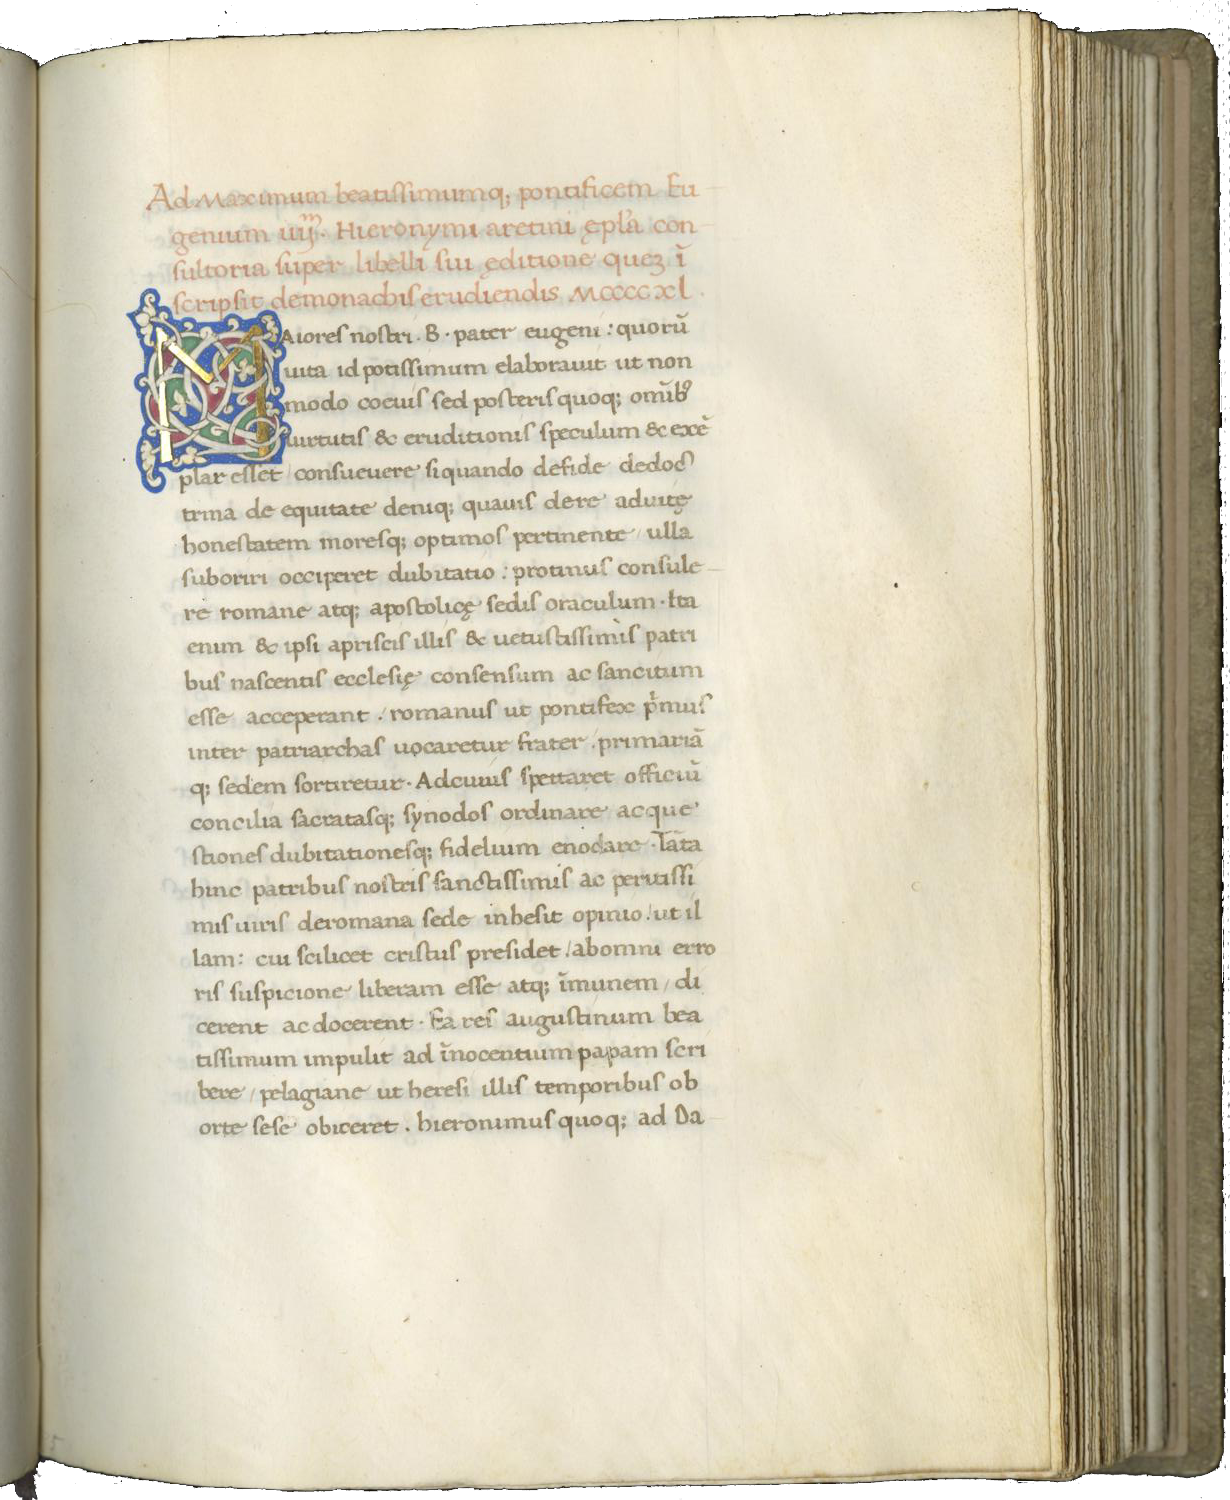 Ad Maximum beatissimumq; pontificem Eu
genium iiij^m. Hieronymi aretini ępl̃a con
sultoria super libelli sui ęditione quez ĩ
scripsit demonachis erudiendis MCCCCXL.
MAiores nostri. B. pater eugeni: quorũ
uita id potissimum elaborauit ut non
modo coeuis sed posteris quoq; omĩbꝰ
uirtutis & eruditionis speculum & exẽ
plar esset consueuere siquando defide dedoc
trina de equitate deniq; quauis dere aduitę
honestatem moresq; optimos pertinente / ulla
suboriri occiperet dubitatio: protinus consule
re romane atq; apostolicę sedis oraculum. Ita
enim & ipsi apriscis illis & uetustissimis patri
bus nascentis ecclesię consensum ac sancitum
esse acceperant / romanus ut pontifex pͥmus
inter patriarchas uocaretur frater / primariã
q; sedem sortiretur. Adcuius spettaret officiũ
concilia sacratasq; synodos ordinare ac que
stiones dubitationesq; fidelium enodare. Tãta
hinc patribus nostris sanctissimis ac peritissi
mis uiris deromana sede inhesit opinio / ut il
lam: cui scilicet cristus presidet / abomni erro
ris suspicione liberam esse atq; ĩmunem / di
cerent ac docerent. Ea res augustinum bea
tissimum impulit ad ĩnocentium papam scri
bere / pelagiane ut heresi illis temporibus ob
orte sese obiceret. hieronimus quoq; ad Da